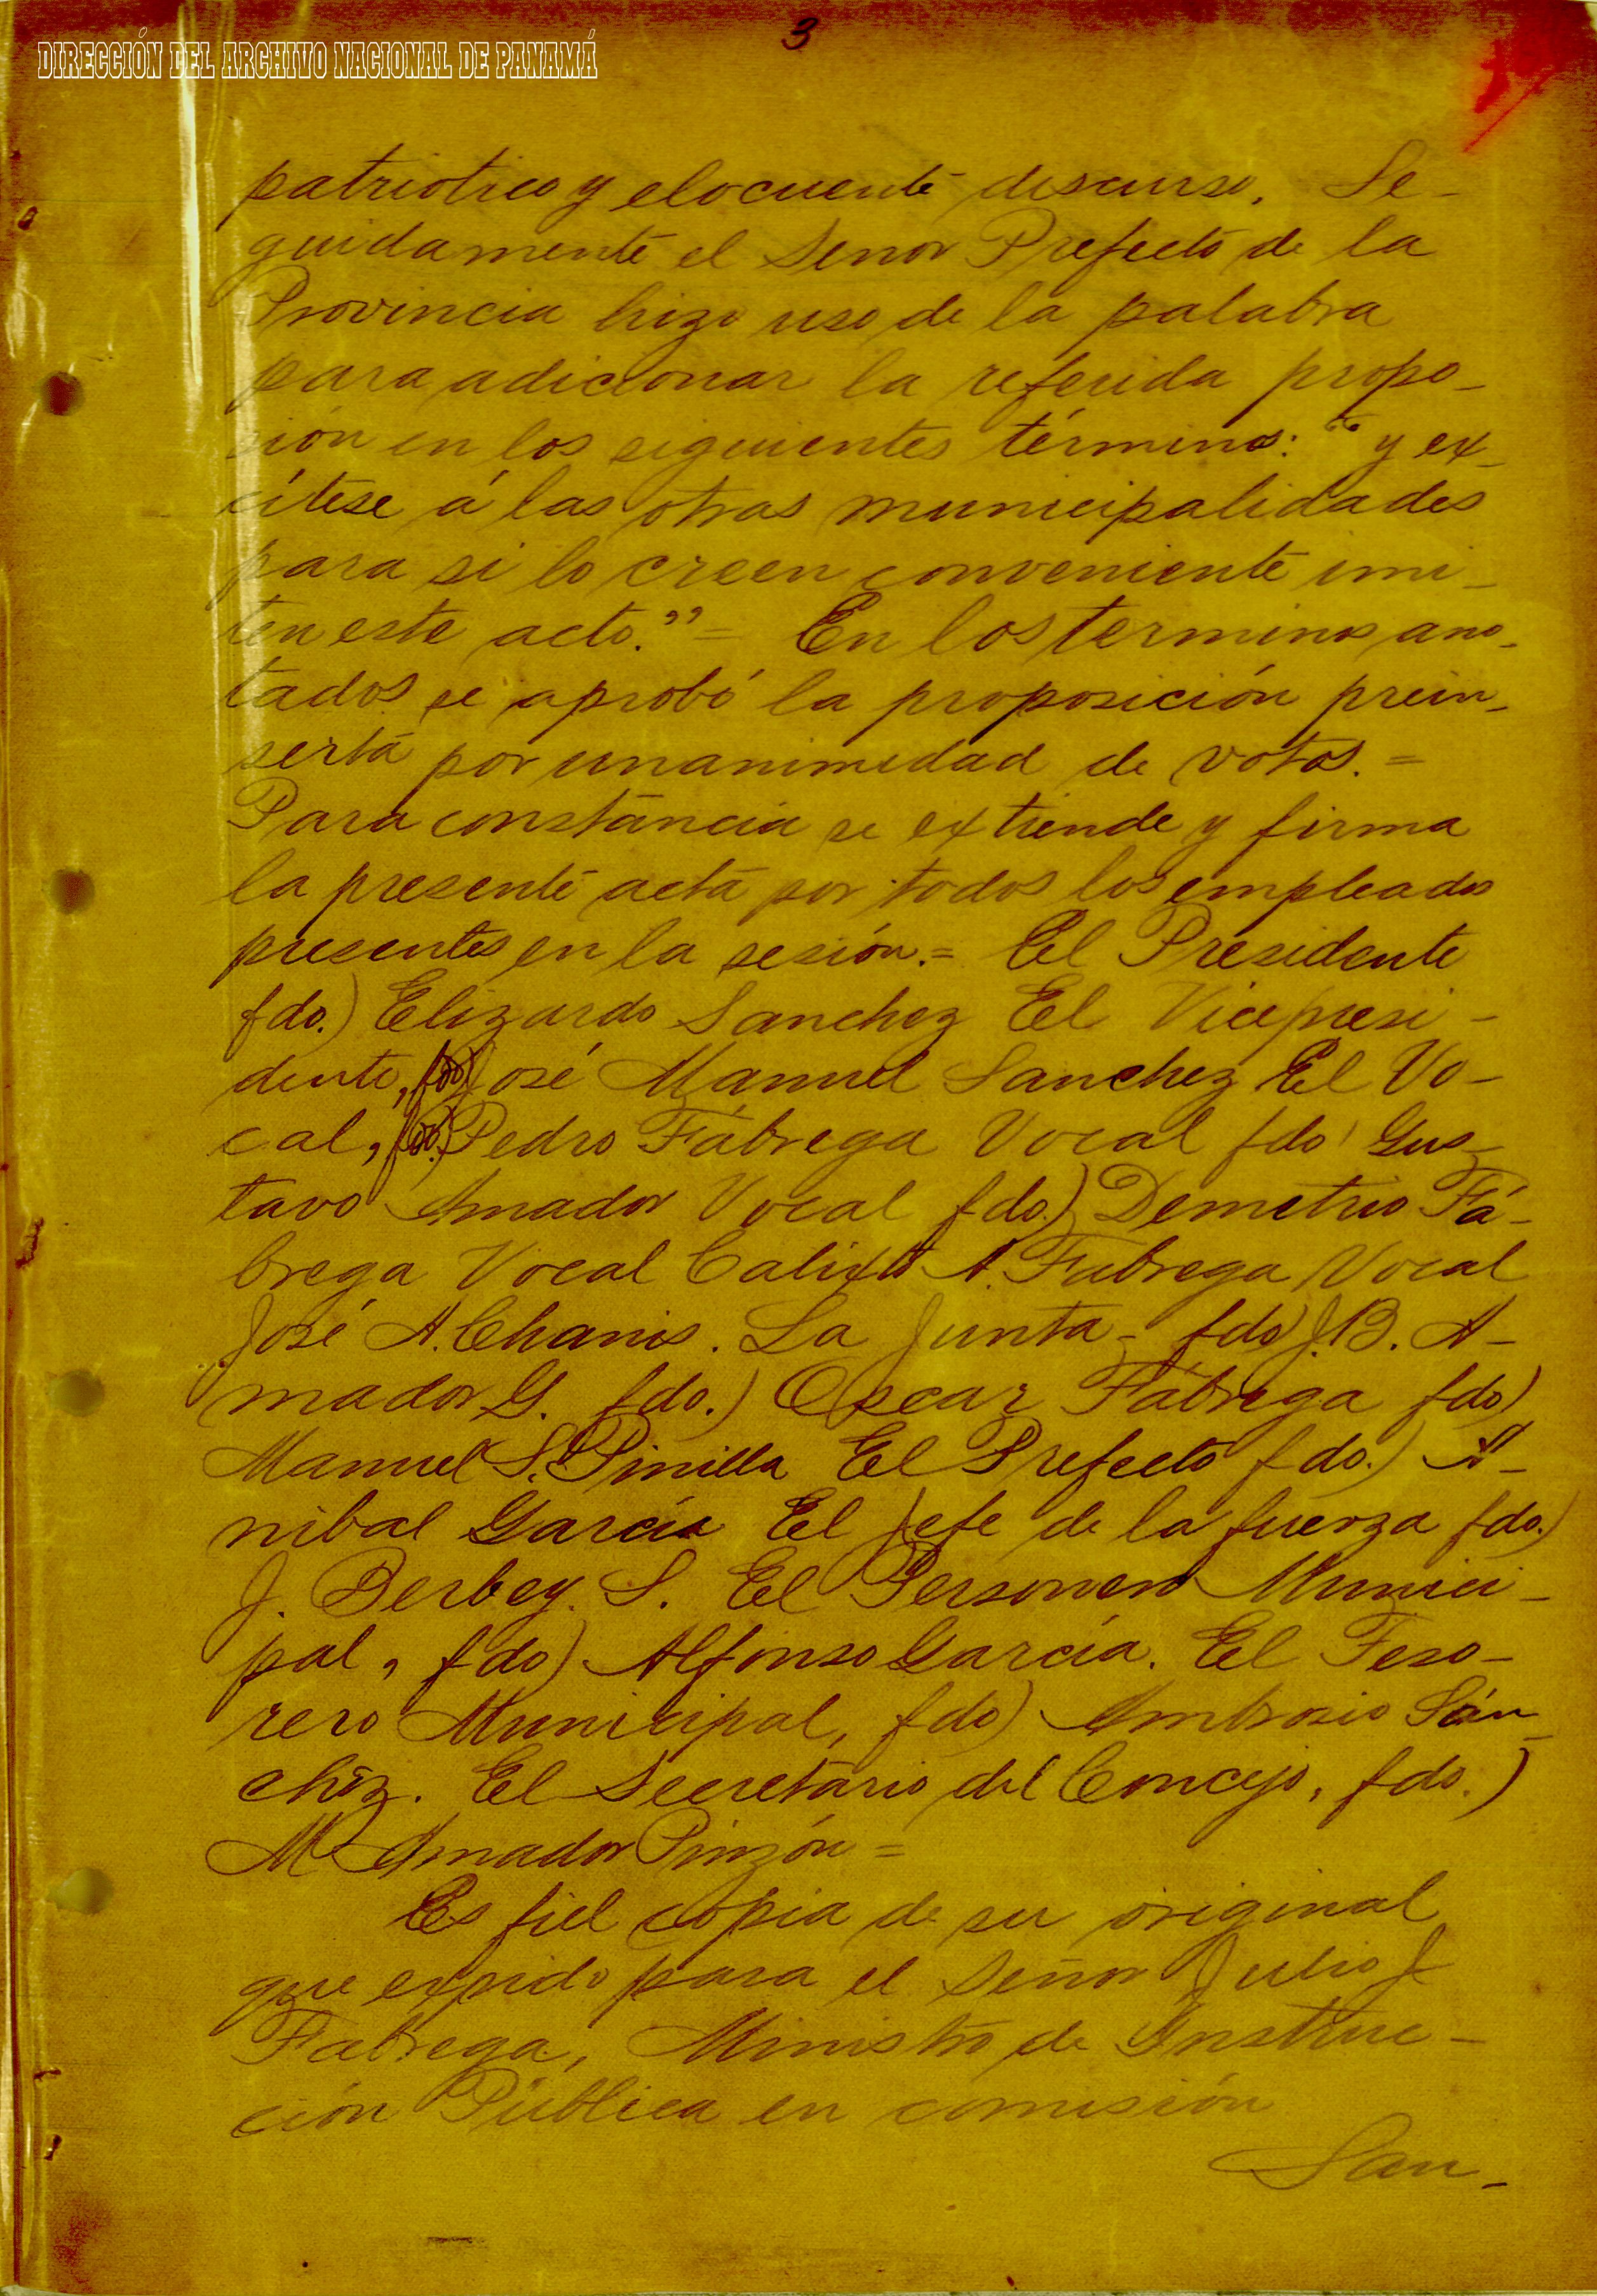 3
DIRECCIÓN DEL ARCHIVO NACIONAL DE PANAMÁ
patriotico y elocuente discurso. Se-
guidamente el Senor Prefecto de la
Provincia hizo uso de la palabra
para adicionar la referida propo-
sión en los siguientes términos: "y ex-
cítese á las otras municipalidades
para si lo creen conveniente imi-
ten este acto." = En los terminos ano-
tados se aprobó la proposición prein-
serta por unanimidad de votos. =
Para constancia se extiende y firma
la presente acta por todos los empleados
presentes en la sesión. = El Presidente
fdo.) Elizardo Sanchez El Vicepresi-
dente, fdo) José Manuel Sanchez El Vo-
cal, fdo.) Pedro Fábrega Vocal fdo) Gus-
tavo Amador Vocal fdo.) Demetrio Fá-
brega Vocal Calixto A. Fabrega Vocal
José A. Chanis. La Junta - fdo) J. B. A-
mador G. fdo.) Oscar Fábrega fdo)
Manuel S. Pinilla El Prefecto fdo.) A-
nibal García El Jefe de la fuerza fdo.)
J. Berbey. S. El Personero Munici-
pal, fdo) Alfonso García. El Teso-
rero Municipal, fdo) Ambrosio Sán-
chez. El Secretario del Concejo, fdo.)
M Amador Pinzón =
Es fiel copia de su original
que expido para el Señor Julio J
Fabrega, Ministro de Instruc-
ción Pública en comisión
San-